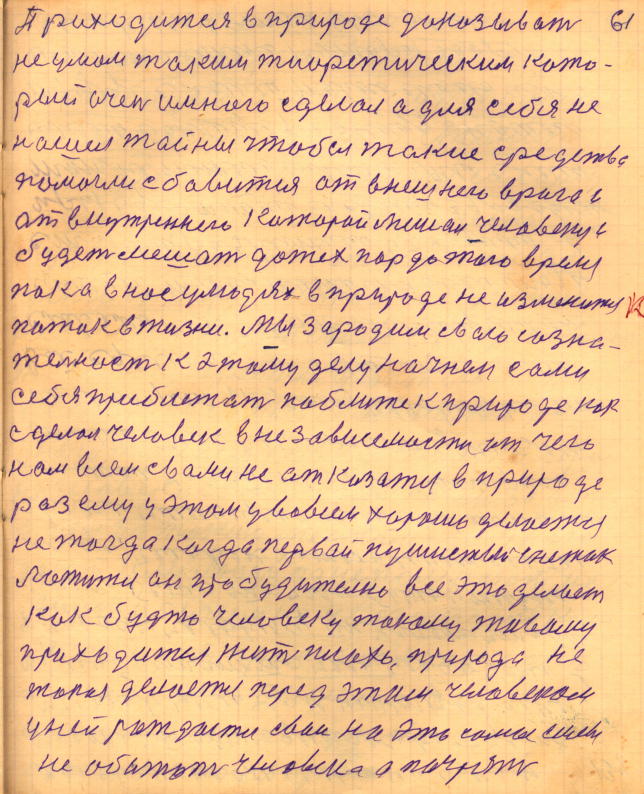 Приходится в природе доказыват 61
не умом таким тиоретическим кото-
рый очен и много сделал а для себя не
нашел тайны чтобы такие средства
помогли сбавится от внешнего врага и
от внутреннего которой мешал человеку и
будет мешат до тех пор до того время
пока в нас у людях в природе не изменится
поток в жизни. Мы зародим свою созна-
телност к этому делу начнем сами
себя приближат поближе к природе как
сделал человек в независемости от чего
нам всем свами не отказатся в природе
раз ему у этом у вовсем хорошо делается
не тогда когда первай пушистый снежок
ложится он пробудително все это делает
как будто человеку такому живому
приходится жит плохо, природа не
такая делается перед этим человеком
у ней рождаются свои на это самое силы
не обижат человека а